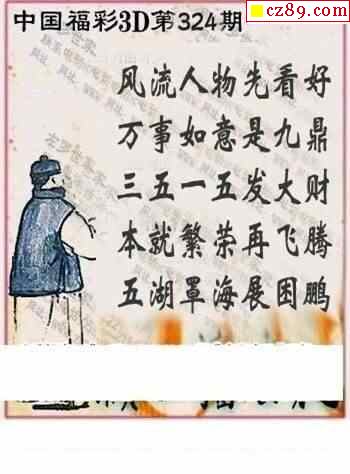 cz89.com
中国福彩3D第324期
风流人物先看好
万事如意是九鼎
三五一五发大财
本就繁荣再飞腾
五湖罩海展困鹏